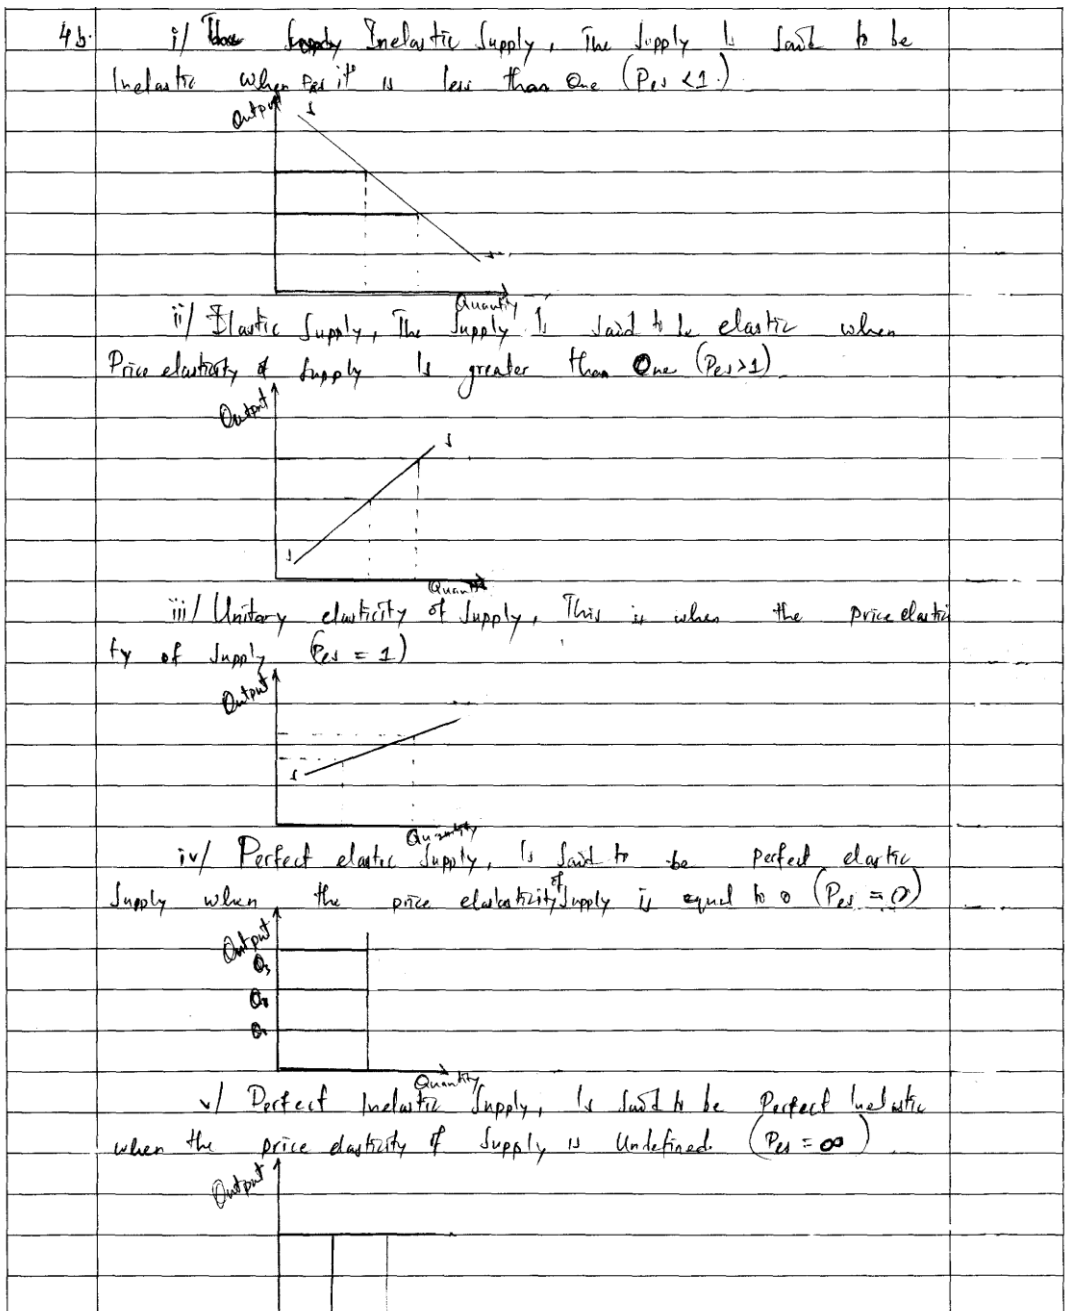 4b. i/ Inelastic Supply, The Supply Is Said to be
Inelastic when it is less than One (Pes <1.)
Output
s
s
Quantity
ii/ Elastic Supply, The Supply Is said to be elastic when
Price elasticity of Supply Is greater than One (Pes>1)
Output
s
s
Quantity
iii/ Unitary elasticity of Supply, This is when the price elastici
ty of Supply (Pes = 1)
Output
s
Quantity
iv/ Perfect elastic Supply, Is Said to be perfect elastic
Supply when the price of Supply is equal to 0 (Pes = 0)
Output
Quantity
v/ Perfect Inelastic Supply, Is Said to be Perfect Inelastic
when the price elasticity of Supply is Undefined. (Pes = ∞)
Output